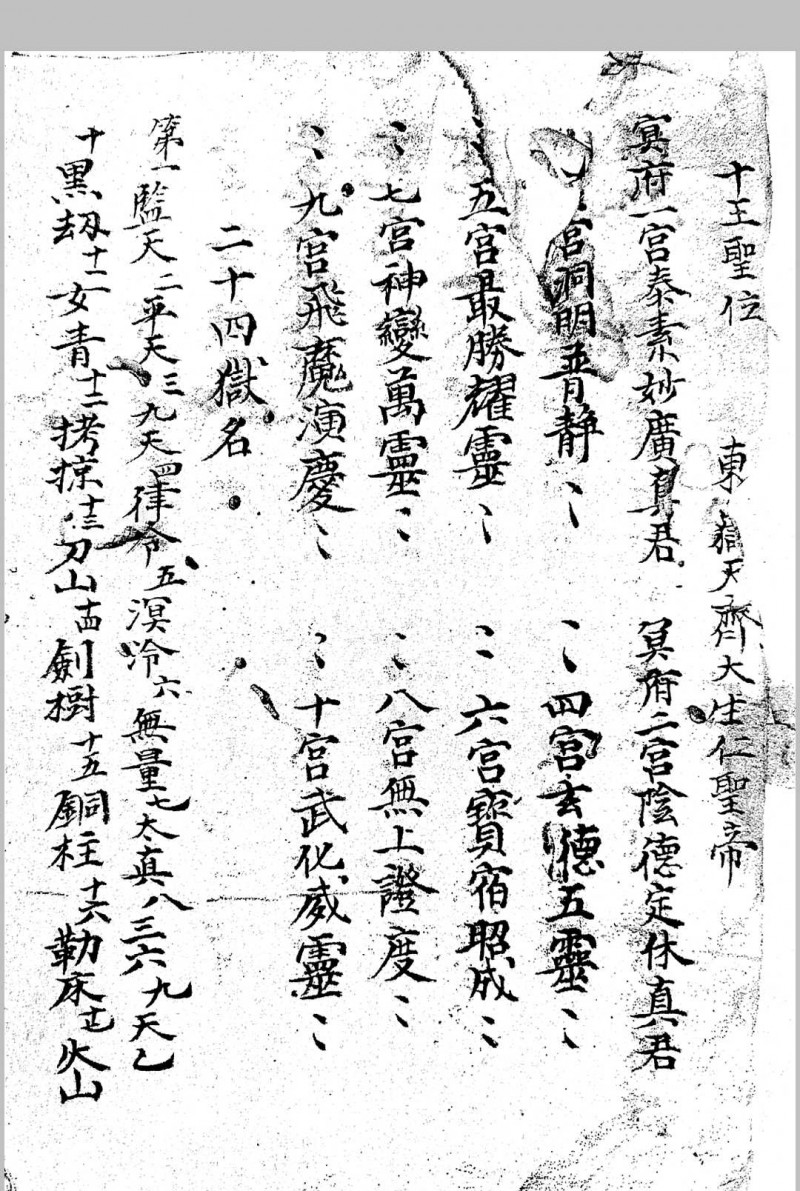 十王聖位　東嶽天齊大生仁聖帝
冥府一宮泰素妙廣真君　冥府二宮陰德定休真君
宮洞明普靜〻　〻四宮玄德五靈〻
〻五宮最勝耀靈〻　〻六宮寶宿昭成〻
〻七宮神變萬靈〻　〻八宮無上證度〻
〻九宮飛魔演慶〻　〻十宮武化威靈〻
二十四獄名
第一監天二平天三九天四律令五溟泠六無量七太真八三六九天乙
十黑劫十一女青十二拷掠十三刀山十四劍樹十五銅柱十六勒床十七火山